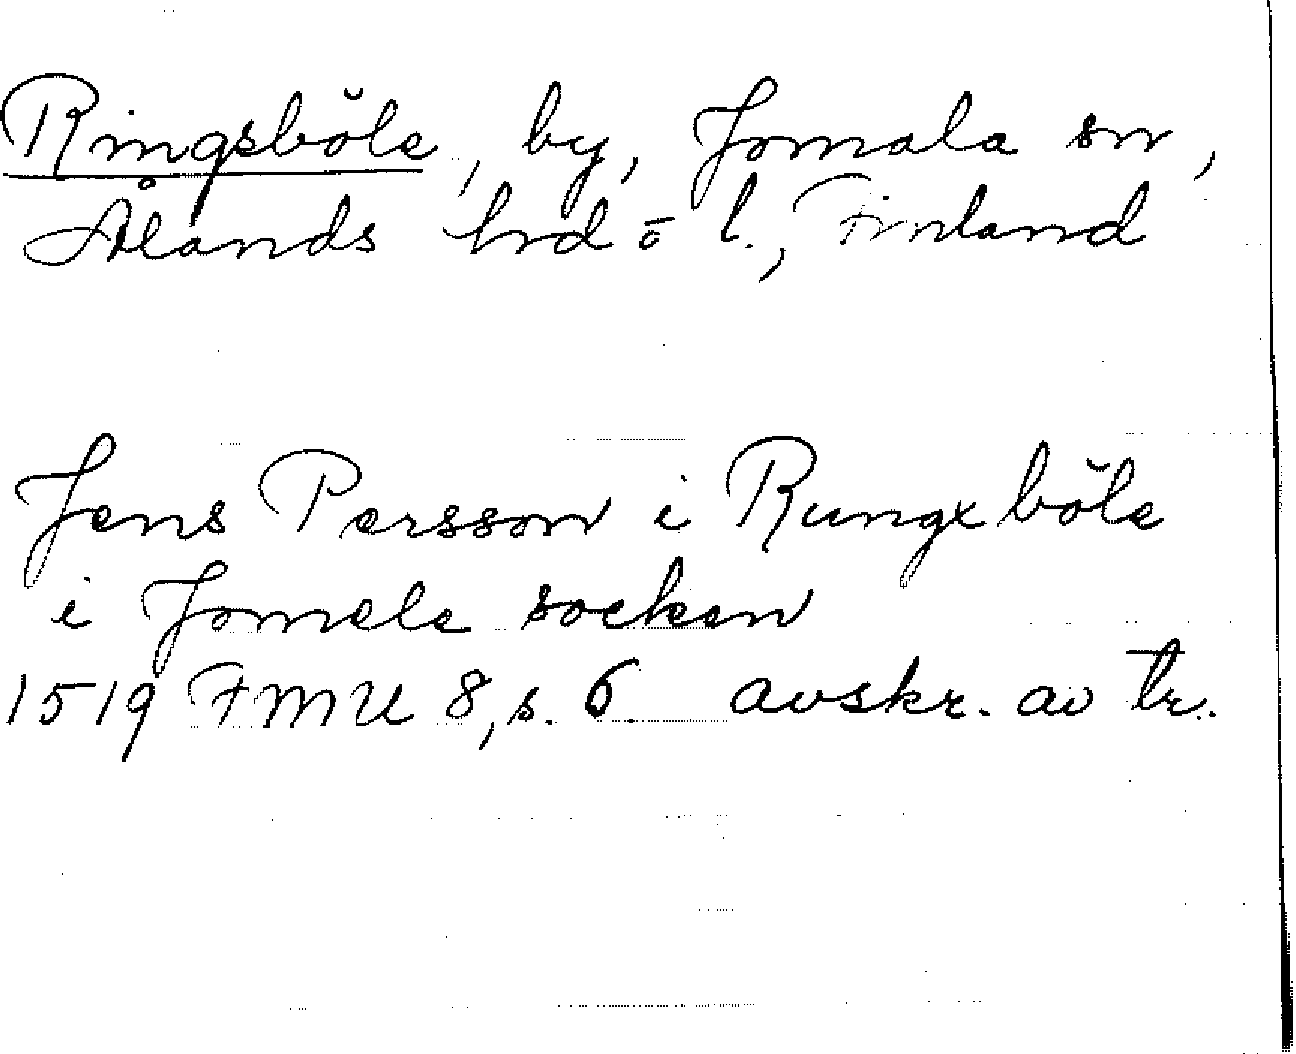 Ringsböle, by, Jomala sn,
Ålands hrd o l., Finland
Jens Persson i Rungxböle
i Jomele socken
1519 FMU 8, s. 6 avskr. av tr.